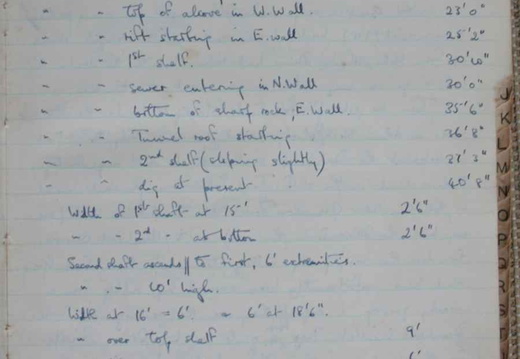 " " top of above in W. Wall. 23'0"
" " rift starting in E. wall 25'2"
" " 1st shelf. 30'10"
" " sewer entering in N. Wall 30'0"
" " bottom of sharp rock, E. Wall. 35'6"
" " Tunnel roof starting 36'8"
" " 2nd shelf (sloping slightly) 37'3"
" " dig at present 40'8"
Width of 1st shaft at 15' 2'6"
" " 2nd " at bottom 2'6"
Second shaft ascends || to first, 6' extremities.
" " 10' high.
Width at 16' = 6'. = 6' at 18'6".
" over top shelf 9'
J
K
L
M
N
O
P
Q
R
S
T